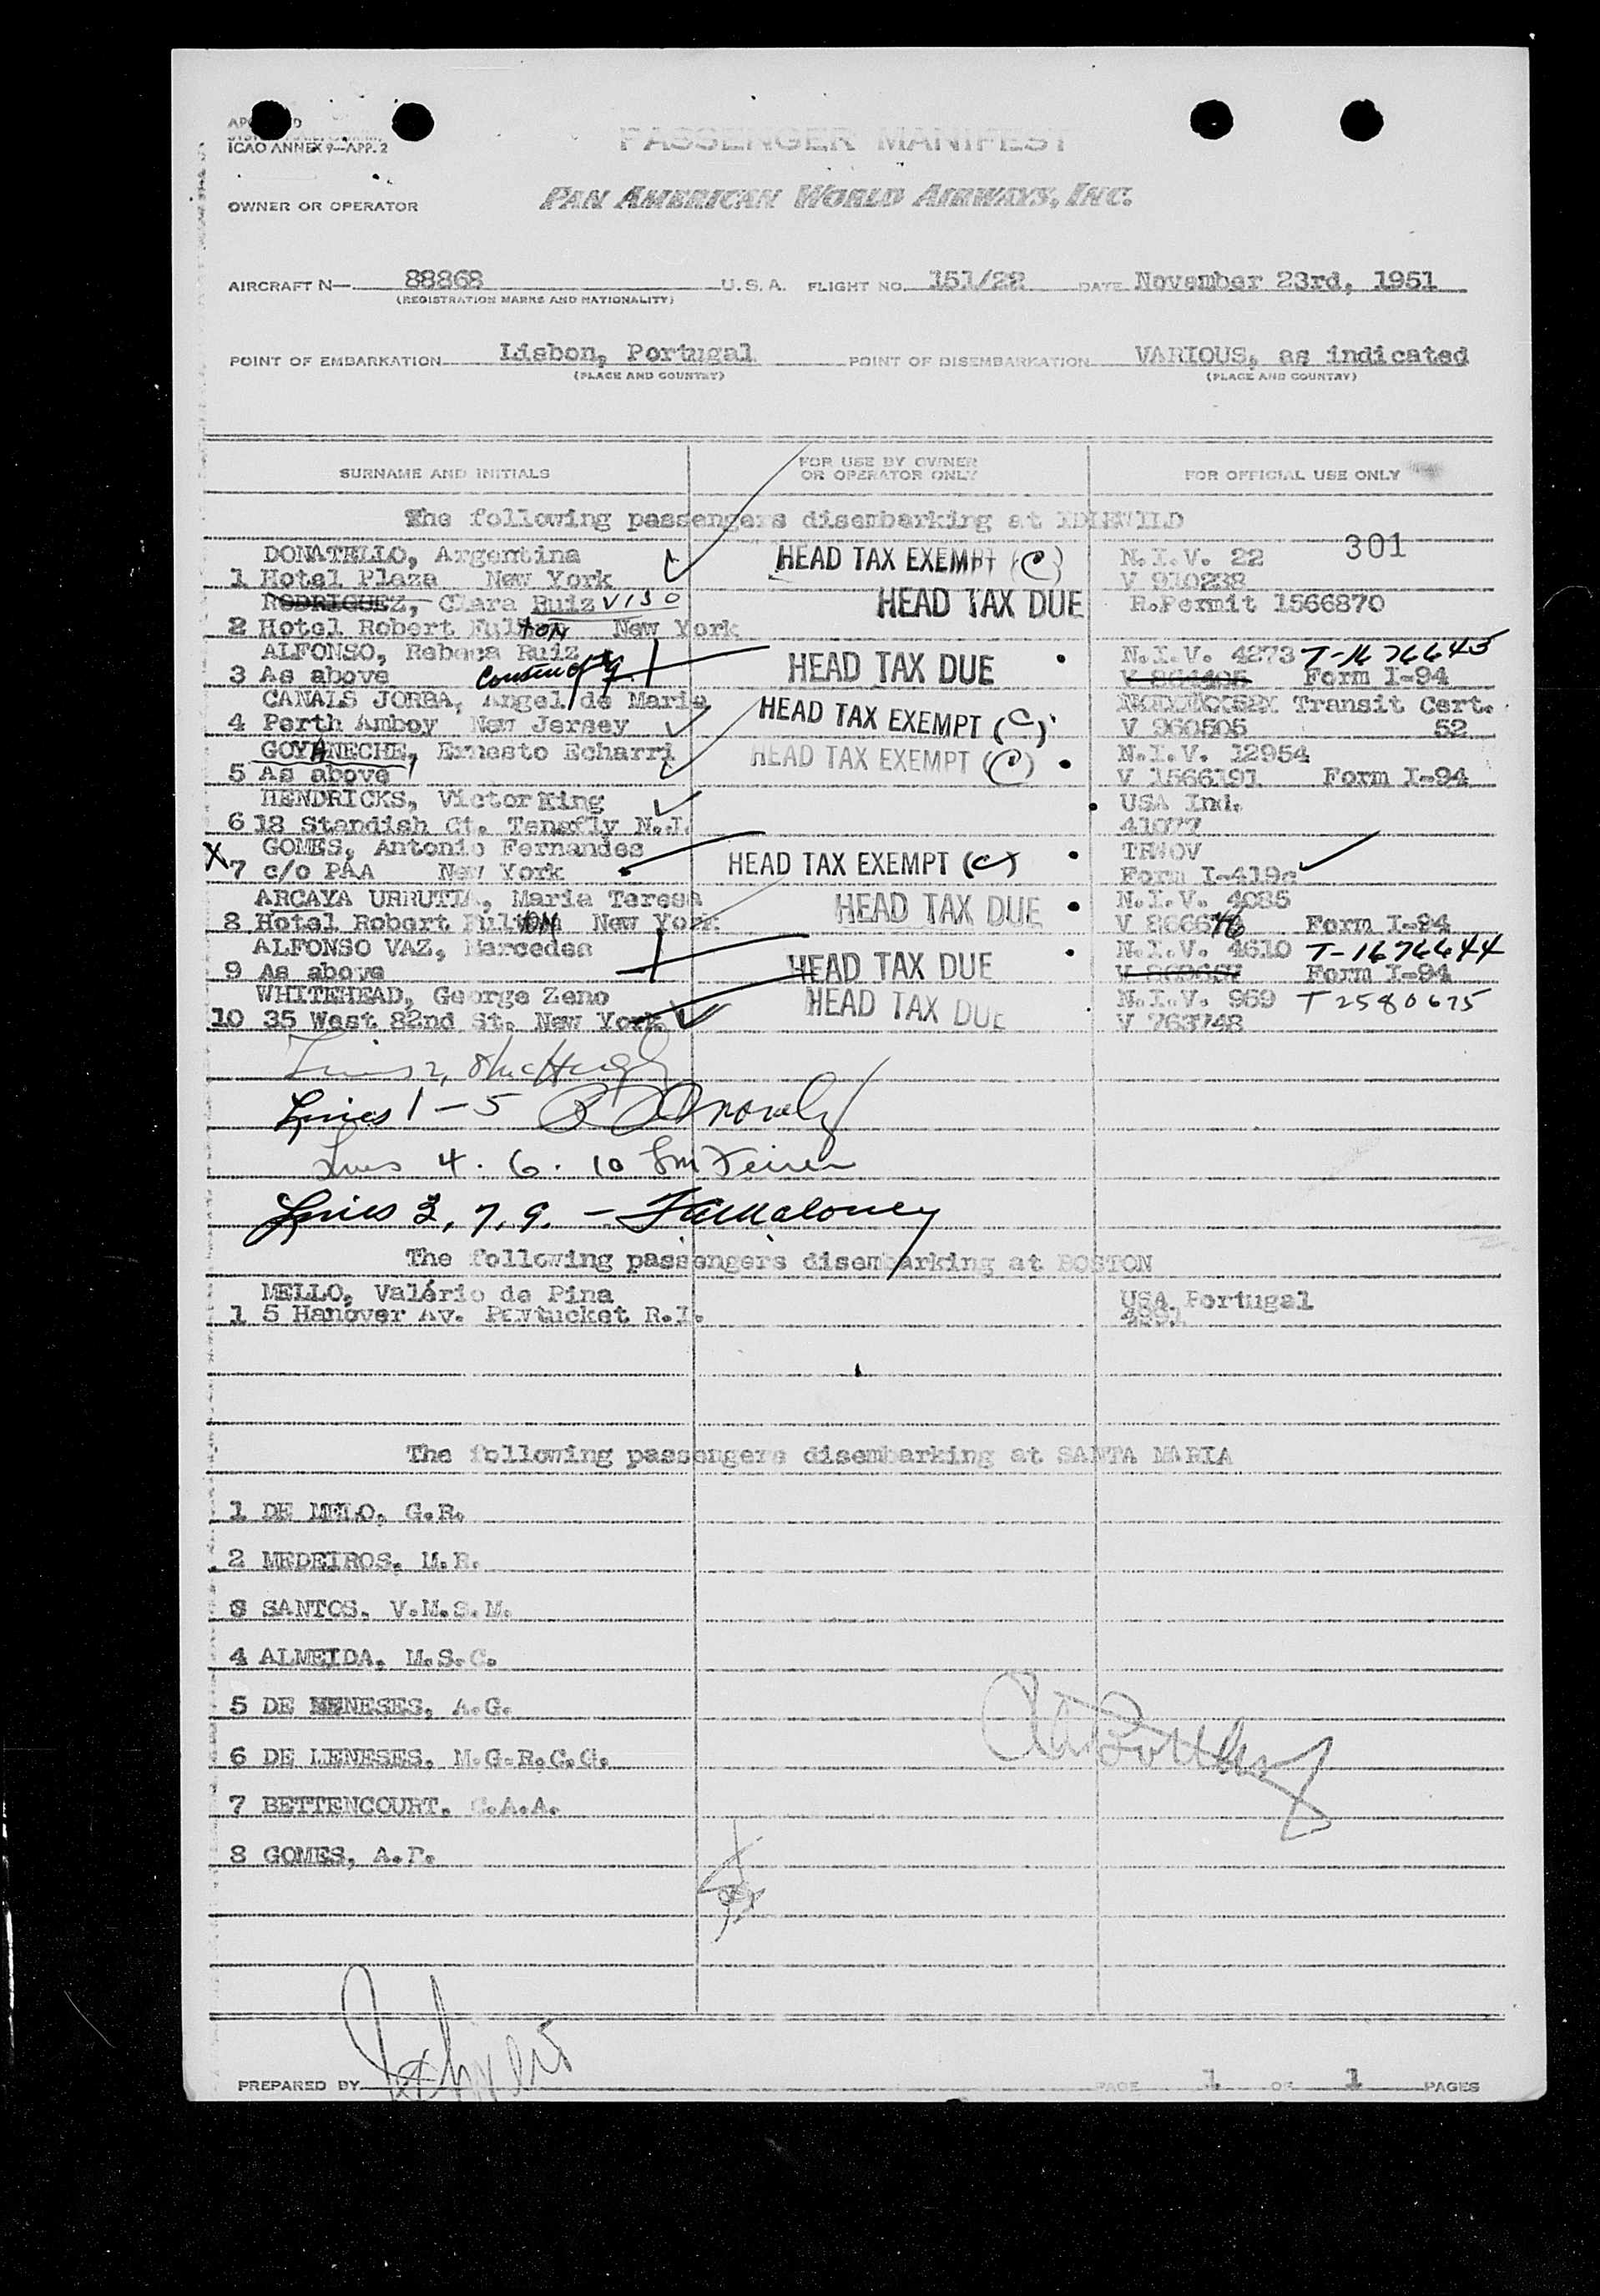 ICAO ANNEX 9—APP. 2
PASSENGER MANIFEST
OWNER OR OPERATOR PAN AMERICAN WORLD AIRWAYS, INC.
AIRCRAFT N— 88868 U.S.A. FLIGHT NO. 151/22 DATE November 23rd, 1951
(REGISTRATION MARKS AND NATIONALITY)
POINT OF EMBARKATION Lisbon, Portugal POINT OF DISEMBARKATION VARIOUS, as indicated
(PLACE AND COUNTRY) (PLACE AND COUNTRY)
SURNAME AND INITIALS FOR USE BY OWNER OR OPERATOR ONLY FOR OFFICIAL USE ONLY
The following passengers disembarking at IDLEWILD
DONATELLO, Argentina HEAD TAX EXEMPT (C) N.I.V. 22 301
1 Hotel Plaza New York V 910238
RODRIGUEZ, Clara Ruiz VISO HEAD TAX DUE R.Permit 1566870
2 Hotel Robert Fulton New York
ALFONSO, Rebeca Ruiz HEAD TAX DUE N.I.V. 4273 T-1676643
3 As above Form I-94
CANALS JORBA, Angel de Maria HEAD TAX EXEMPT (C) Transit Cert.
4 Perth Amboy New Jersey V 960505 52
GOYANECHE, Ernesto Echarri HEAD TAX EXEMPT (C) N.I.V. 12954
5 As above V 1566191 Form I-94
HENDRICKS, Victor King USA Ind.
6 18 Standish Ct. Tenafly N.J. 41077
GOMES, Antonio Fernandes HEAD TAX EXEMPT (C) TRWOV
X 7 c/o PAA New York Form I-419c
ARCAYA URRUTIA, Maria Teresa HEAD TAX DUE N.I.V. 4085
8 Hotel Robert Fulton New York Form I-94
ALFONSO VAZ, Mercedes HEAD TAX DUE N.I.V. 4610 T-1676644
9 As above Form I-94
WHITEHEAD, George Zeno HEAD TAX DUE N.I.V. 969 T2580675
10 35 West 82nd St. New York V 763748
Lines 1-5
Lines 4. 6. 10
Lines 3, 7, 9. - Maloney
The following passengers disembarking at BOSTON
MELLO, Valério de Pina USA Portugal
1 5 Hanover Av. Pawtucket R.I.
The following passengers disembarking at SANTA MARIA
1 DE MELO, G.R.
2 MEDEIROS, M.R.
3 SANTOS, V.M.S.M.
4 ALMEIDA, M.S.C.
5 DE MENESES, A.G.
6 DE MENESES, M.G.R.C.G.
7 BETTENCOURT, C.A.A.
8 GOMES, A.P.
PREPARED BY PAGE 1 OF 1 PAGES